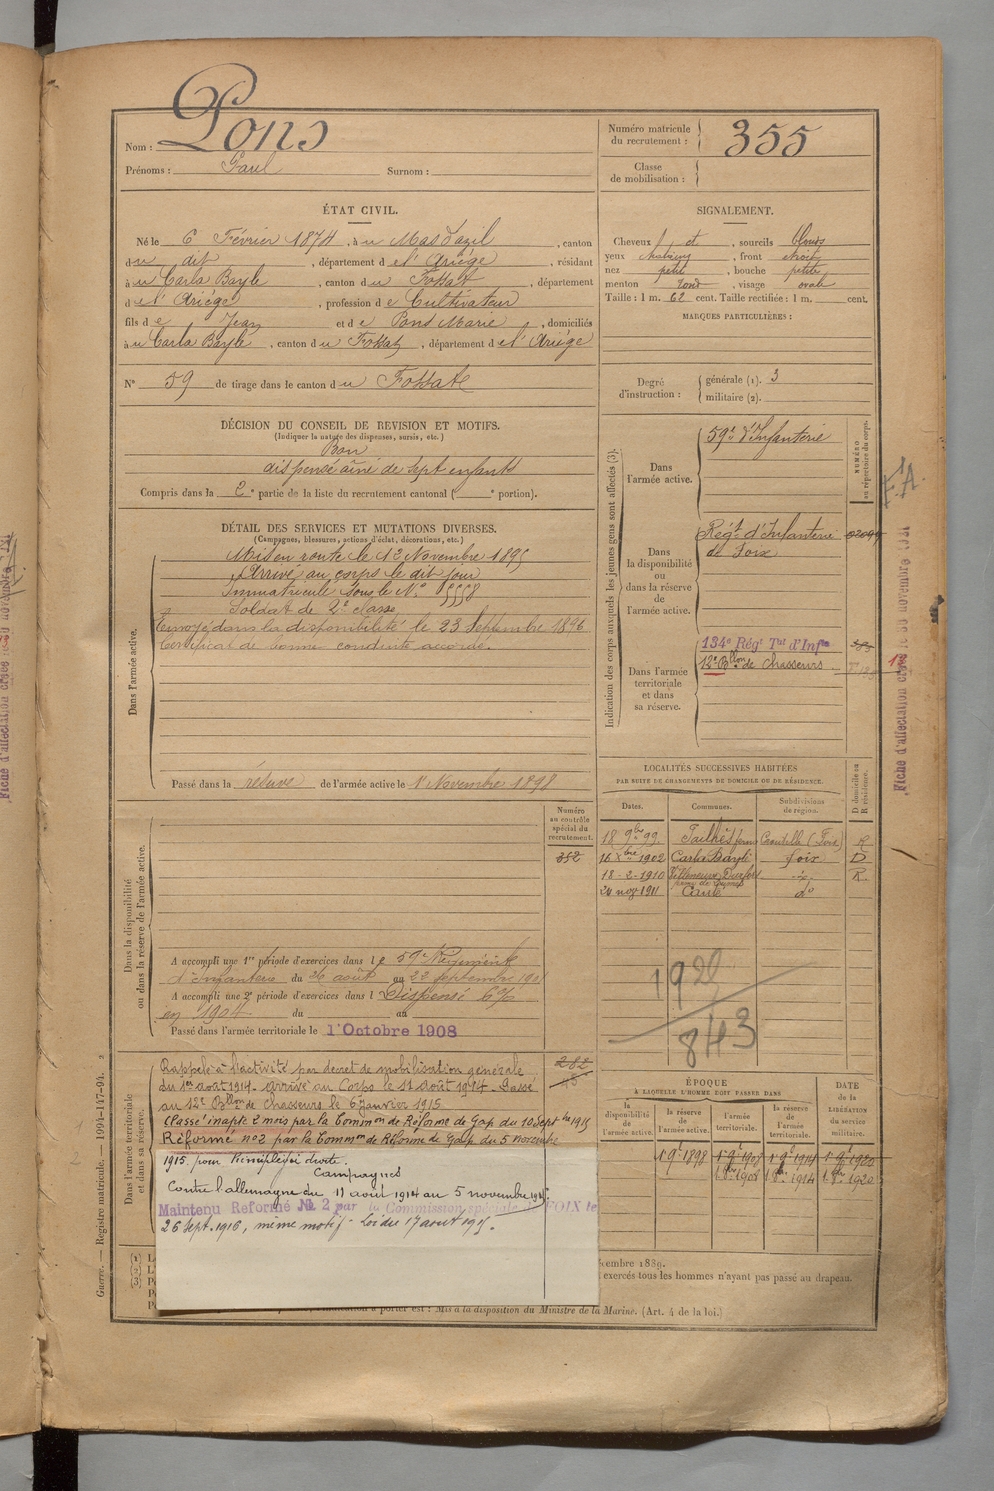 Nom : Pons
Prénoms : Paul Surnom :
Numéro matricule du recrutement : 355
Classe de mobilisation :
ÉTAT CIVIL.
Né le 6 Février 1874, à u Mas d'azil, canton
d u dit, département d e l'Ariège, résidant
à u Carla Bayle, canton d u Fossat, département
d e l'Ariège, profession d e Cultivateur
fils d e Jean et d e Pons Marie, domiciliés
à u Carla Bayle, canton d u Fossat, département d e l'Ariège
N° 59 de tirage dans le canton d u Fossat
SIGNALEMENT.
Cheveux et, sourcils blonds
yeux, front étroit
nez petit, bouche petite
menton rond, visage ovale
Taille : 1 m. 62 cent. Taille rectifiée : 1 m. cent.
MARQUES PARTICULIÈRES :
Degré d'instruction : générale (1). 3
militaire (2).
DÉCISION DU CONSEIL DE REVISION ET MOTIFS.
(Indiquer la nature des dispenses, sursis, etc.)
Bon
dispensé aîné de sept enfants
Compris dans la 2e partie de la liste du recrutement cantonal ( e portion).
DÉTAIL DES SERVICES ET MUTATIONS DIVERSES.
(Campagnes, blessures, actions d'éclat, décorations, etc.)
Dans l'armée active.
Mis en route le 12 Novembre 1895
Arrivé au corps le dit jour
Immatriculé sous le N°
Soldat de 2e classe
Envoyé dans la disponibilité le 23 Septembre 1896
Certificat de bonne conduite accordé.
Passé dans la réserve de l'armée active le 1r Novembre 1898
Indication des corps auxquels les jeunes gens sont affectés (3).
NUMÉRO au répertoire du corps.
Dans l'armée active.
59e d'Infanterie
Dans la disponibilité ou dans la réserve de l'armée active.
Régt d'Infanterie
de Foix
Dans l'armée territoriale et dans sa réserve.
134e Régt Tal d'Infie
12e Bllon de Chasseurs
F.A.
Fiche d'affectation créée le 30 novembre 1931
Dans la disponibilité ou dans la réserve de l'armée active.
Numéro au contrôle spécial du recrutement.
352
A accompli une 1re période d'exercices dans l e 59e Régiment
d'Infanterie du 26 août au 22 septembre
A accompli une 2e période d'exercices dans l Dispensé 6%
en 1904 du au
Passé dans l'armée territoriale le 1r Octobre 1908
LOCALITÉS SUCCESSIVES HABITÉES
PAR SUITE DE CHANGEMENTS DE DOMICILE OU DE RÉSIDENCE.
Dates. Communes. Subdivisions de région. D domicile ou R résidence.
18 9bre 99. R
16 Xbre 1902 Carla Bayle Foix D
18-2-1910 Villeneuve R.
24 nov 1911 do
1922
843
Dans l'armée territoriale et dans sa réserve.
Rappelé à l'activité par décret de mobilisation générale
du 1er août 1914. arrivé au Corps le 11 août 1914. Passé
au 12e Bllon de Chasseurs le 6 janvier 1915
Classé inapte 2 mois par la Common de Réforme de Gap du 10 Septbre 1915
Réformé n°2 par la Common de Réforme de Gap du 5 novembre
1915, pour droite.
Campagnes
Contre l'allemagne du 11 août 1914 au 5 novembre 1915.
Maintenu Réformé № 2 par la Commission spéciale de FOIX le
26 sept. 1916, même motif. Loi du 17 aout 1915.
282
ÉPOQUE
À LAQUELLE L'HOMME DOIT PASSER DANS
la disponibilité de l'armée active. la réserve de l'armée active. l'armée territoriale. la réserve de l'armée territoriale.
DATE de la LIBÉRATION du service militaire.
1r 9e 1898 1r 9e 1908 1r 9e 1914 1r 9e 1920
1 8bre 1908 1 8bre 1914 1 8bre 1920
(1)
(2)
(3)
exercés tous les hommes n'ayant pas passé au drapeau.
à porter est : Mis à la disposition du Ministre de la Marine. (Art. 4 de la loi.)
Guerre. — Registre matricule. — 1094-147-94.